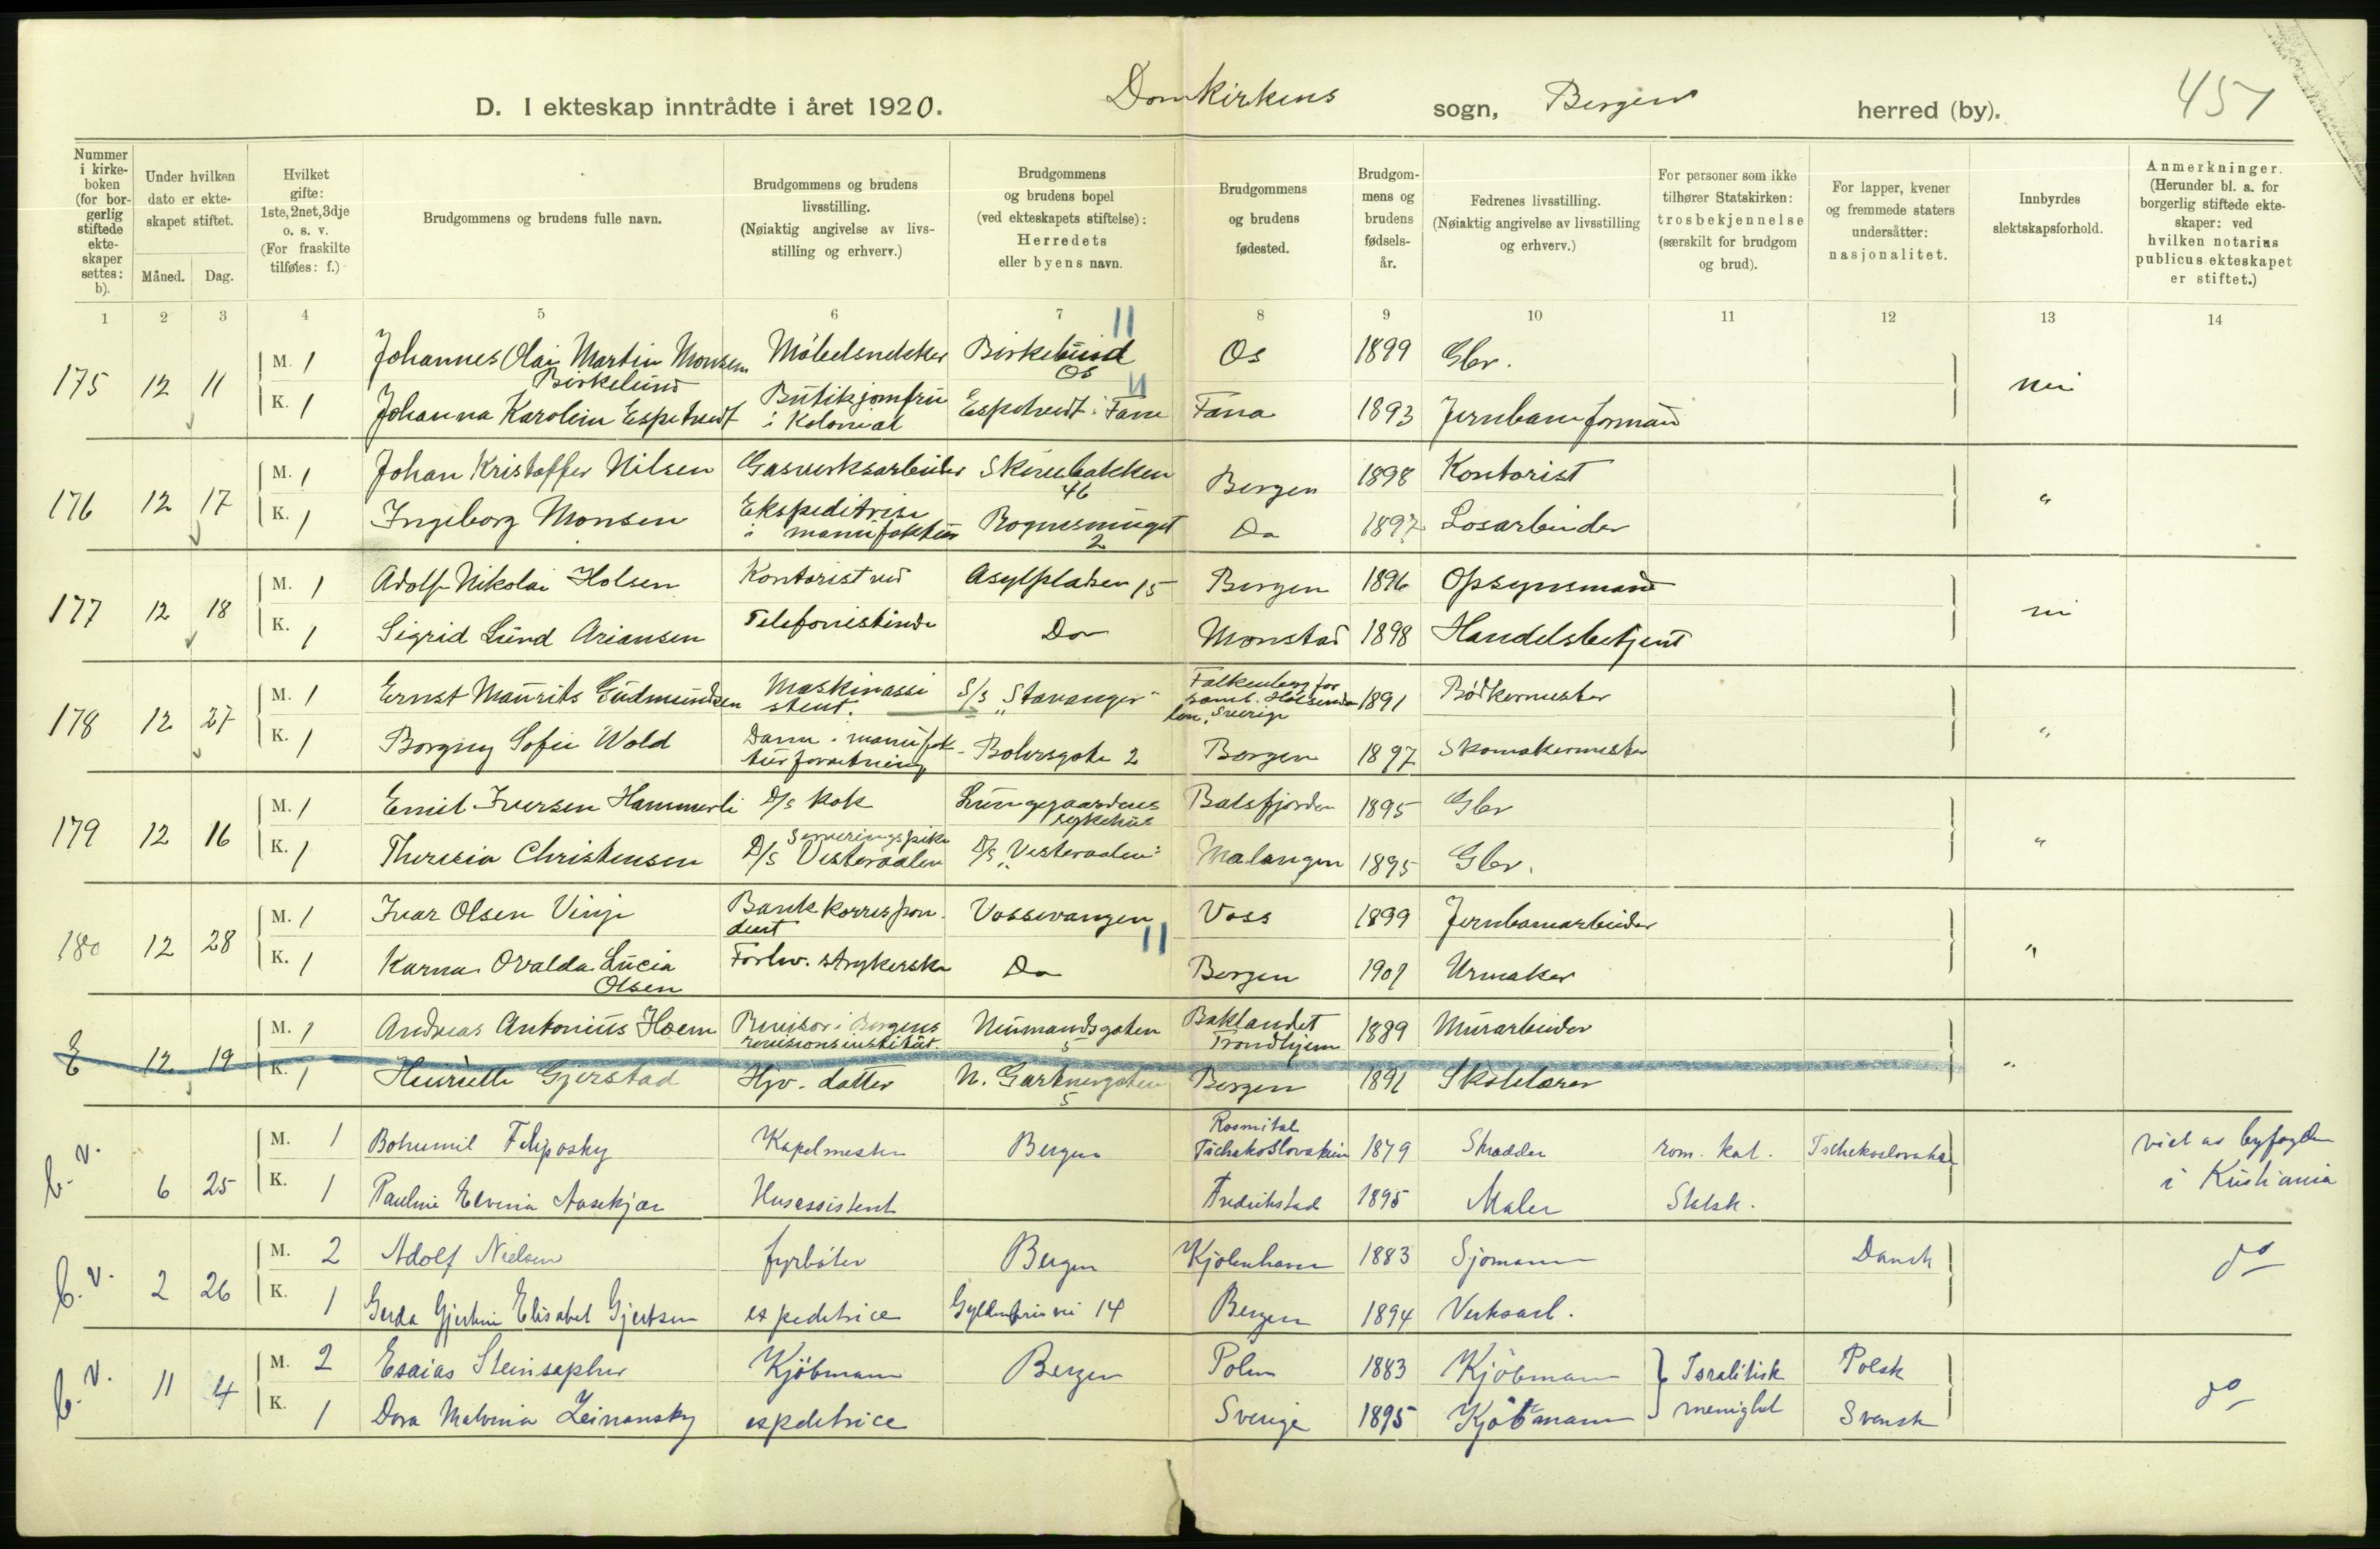 D. I ekteskap inntrådte i året 1920. Domkirkens sogn, Bergen herred (by). 451
Nummer i kirkeboken (for borgerlig stiftede ekteskaper settes: b).
Under hvilken dato er ekteskapet stiftet.
Måned. Dag.
Hvilket gifte: 1ste, 2net, 3dje o. s. v. (For fraskilte tilføies: f.)
Brudgommens og brudens fulle navn.
Brudgommens og brudens livsstilling. (Nøiaktig angivelse av livsstilling og erhverv.)
Brudgommens og brudens bopel (ved ekteskapets stiftelse): Herredets eller byens navn.
Brudgommens og brudens fødested.
Brudgommens og brudens fødselsår.
Fedrenes livsstilling. (Nøiaktig angivelse av livsstilling og erhverv.)
For personer som ikke tilhører Statskirken: trosbekjennelse (særskilt for brudgom og brud).
For lapper, kvener og fremmede staters undersåtter: nasjonalitet.
Innbyrdes slektskapsforhold.
Anmerkninger. (Herunder bl. a. for borgerlig stiftede ekteskaper: ved hvilken notarius publicus ekteskapet er stiftet.)
1 2 3 4 5 6 7 8 9 10 11 12 13 14
11
175 12 11 M. 1 Johannes Olai Martin Monsen Birkelund Møbelsnekker Birkelund Os Os 1899 Gbr. nei
K. 1 Johanna Karoline Espetvedt Butikjomfru i Kolonial Espetvedt i Fane Fana 1893 Jernbaneformand
176 12 17 M. 1 Johan Kristoffer Nilsen Gasverksarbeider Skivebakken 46 Bergen 1898 Kontorist "
K. 1 Ingeborg Monsen Ekspeditrise i manufaktur Rognesmuget 2 Do 1897 Losarbeider
177 12 18 M. 1 Adolf Nikolai Holsen Kontorist ved Asylpladsen 15 Bergen 1896 Opsynsmand nei
K. 1 Sigrid Lund Ariansen Telefonistinde Do Monstad 1898 Handelsbetjent
178 12 27 M. 1 Ernst Maurits Gudmundsen Maskinassistent. S/s "Stavanger" Falkenberg Sverige 1891 Bødkermester "
K. 1 Borgny Sofie Wold Dame i manufakturforretning Bohrsgate 2 Bergen 1897 Skomakermester
179 12 16 M. 1 Emil Iversen Hammerli D/s kok Lungegaardens sykehus Balsfjorden 1895 Gbr "
K. 1 Theresia Christensen Serveringspike D/s Vesteraalen D/s "Vesteraalen" Malangen 1895 Gbr.
180 12 28 M. 1 Ivar Olsen Vinje Bankkorrespondent Vossevangen Voss 1899 Jernbanearbeider "
11
K. 1 Karna Ovalda Lucia Olsen Forhv. strykerske Do Bergen 1901 Urmaker
E 12 19 M. 1 Andreas Antonius Hoem Revisor i Bergens revisionsinstitut. Neumandsgaten 5 Baklandet Trondhjem 1889 Murarbeider "
K. 1 Henriette Gjerstad Hjv. datter N. Gartnergaten 5 Bergen 1891 Skolelærer
b.v. 6 25 M. 1 Bohumil Filipovsky Kapelmester Bergen Rosmital Tschekoslovakien 1879 Skrædder rom. kat. Tschekoslovakisk viet av byfogden i Kristiania
K. 1 Pauline Elvina Aasekjær Husassistent Fredrikstad 1895 Maler Statsk.
b.v. 2 26 M. 2 Adolf Nielsen fyrbøter Bergen Kjøbenhavn 1883 Sjømann Dansk do
K. 1 Gerda Gjertine Elisabet Gjertsen expeditrice Gyldenprisvei 14 Bergen 1894 Verksarb.
b.v. 11 4 M. 2 Esaias Steinsapher Kjøbmann Bergen Polen 1883 Kjøbmann Israelitisk menighet Polsk do
K. 1 Dora Malvina Zeinansky expeditrice Sverige 1895 Kjøbmann Svensk